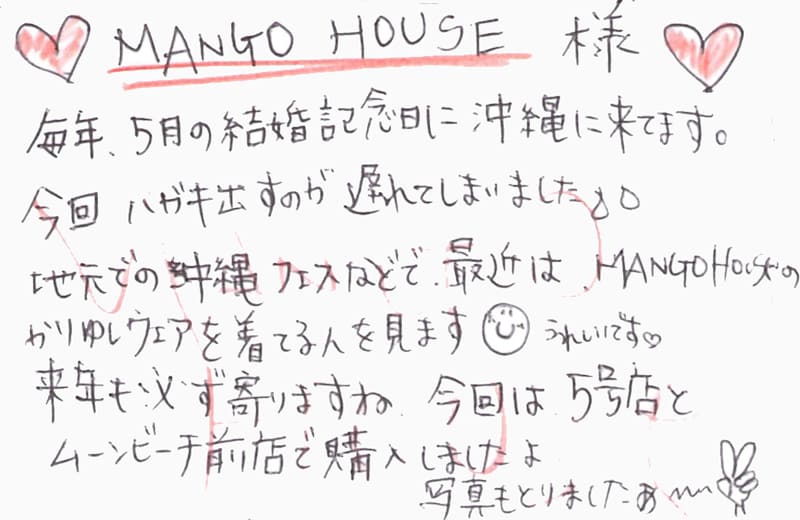 MANGO HOUSE 様
毎年、5月の結婚記念日に沖縄に来てます。
今回 ハガキ出すのが 遅れてしまいました
地元での沖縄フェスなどで、最近は、MANGO HOUSEの
かりゆしウェアを着てる人を見ます うれしいです♡
来年も必ず寄りますね 今回は 5号店と
ムーンビーチ前店で購入しましたよ
写真もとりましたぁ